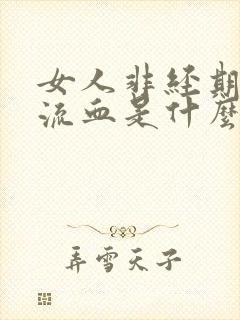 女人非经期
流血是什麼
弄雪天子